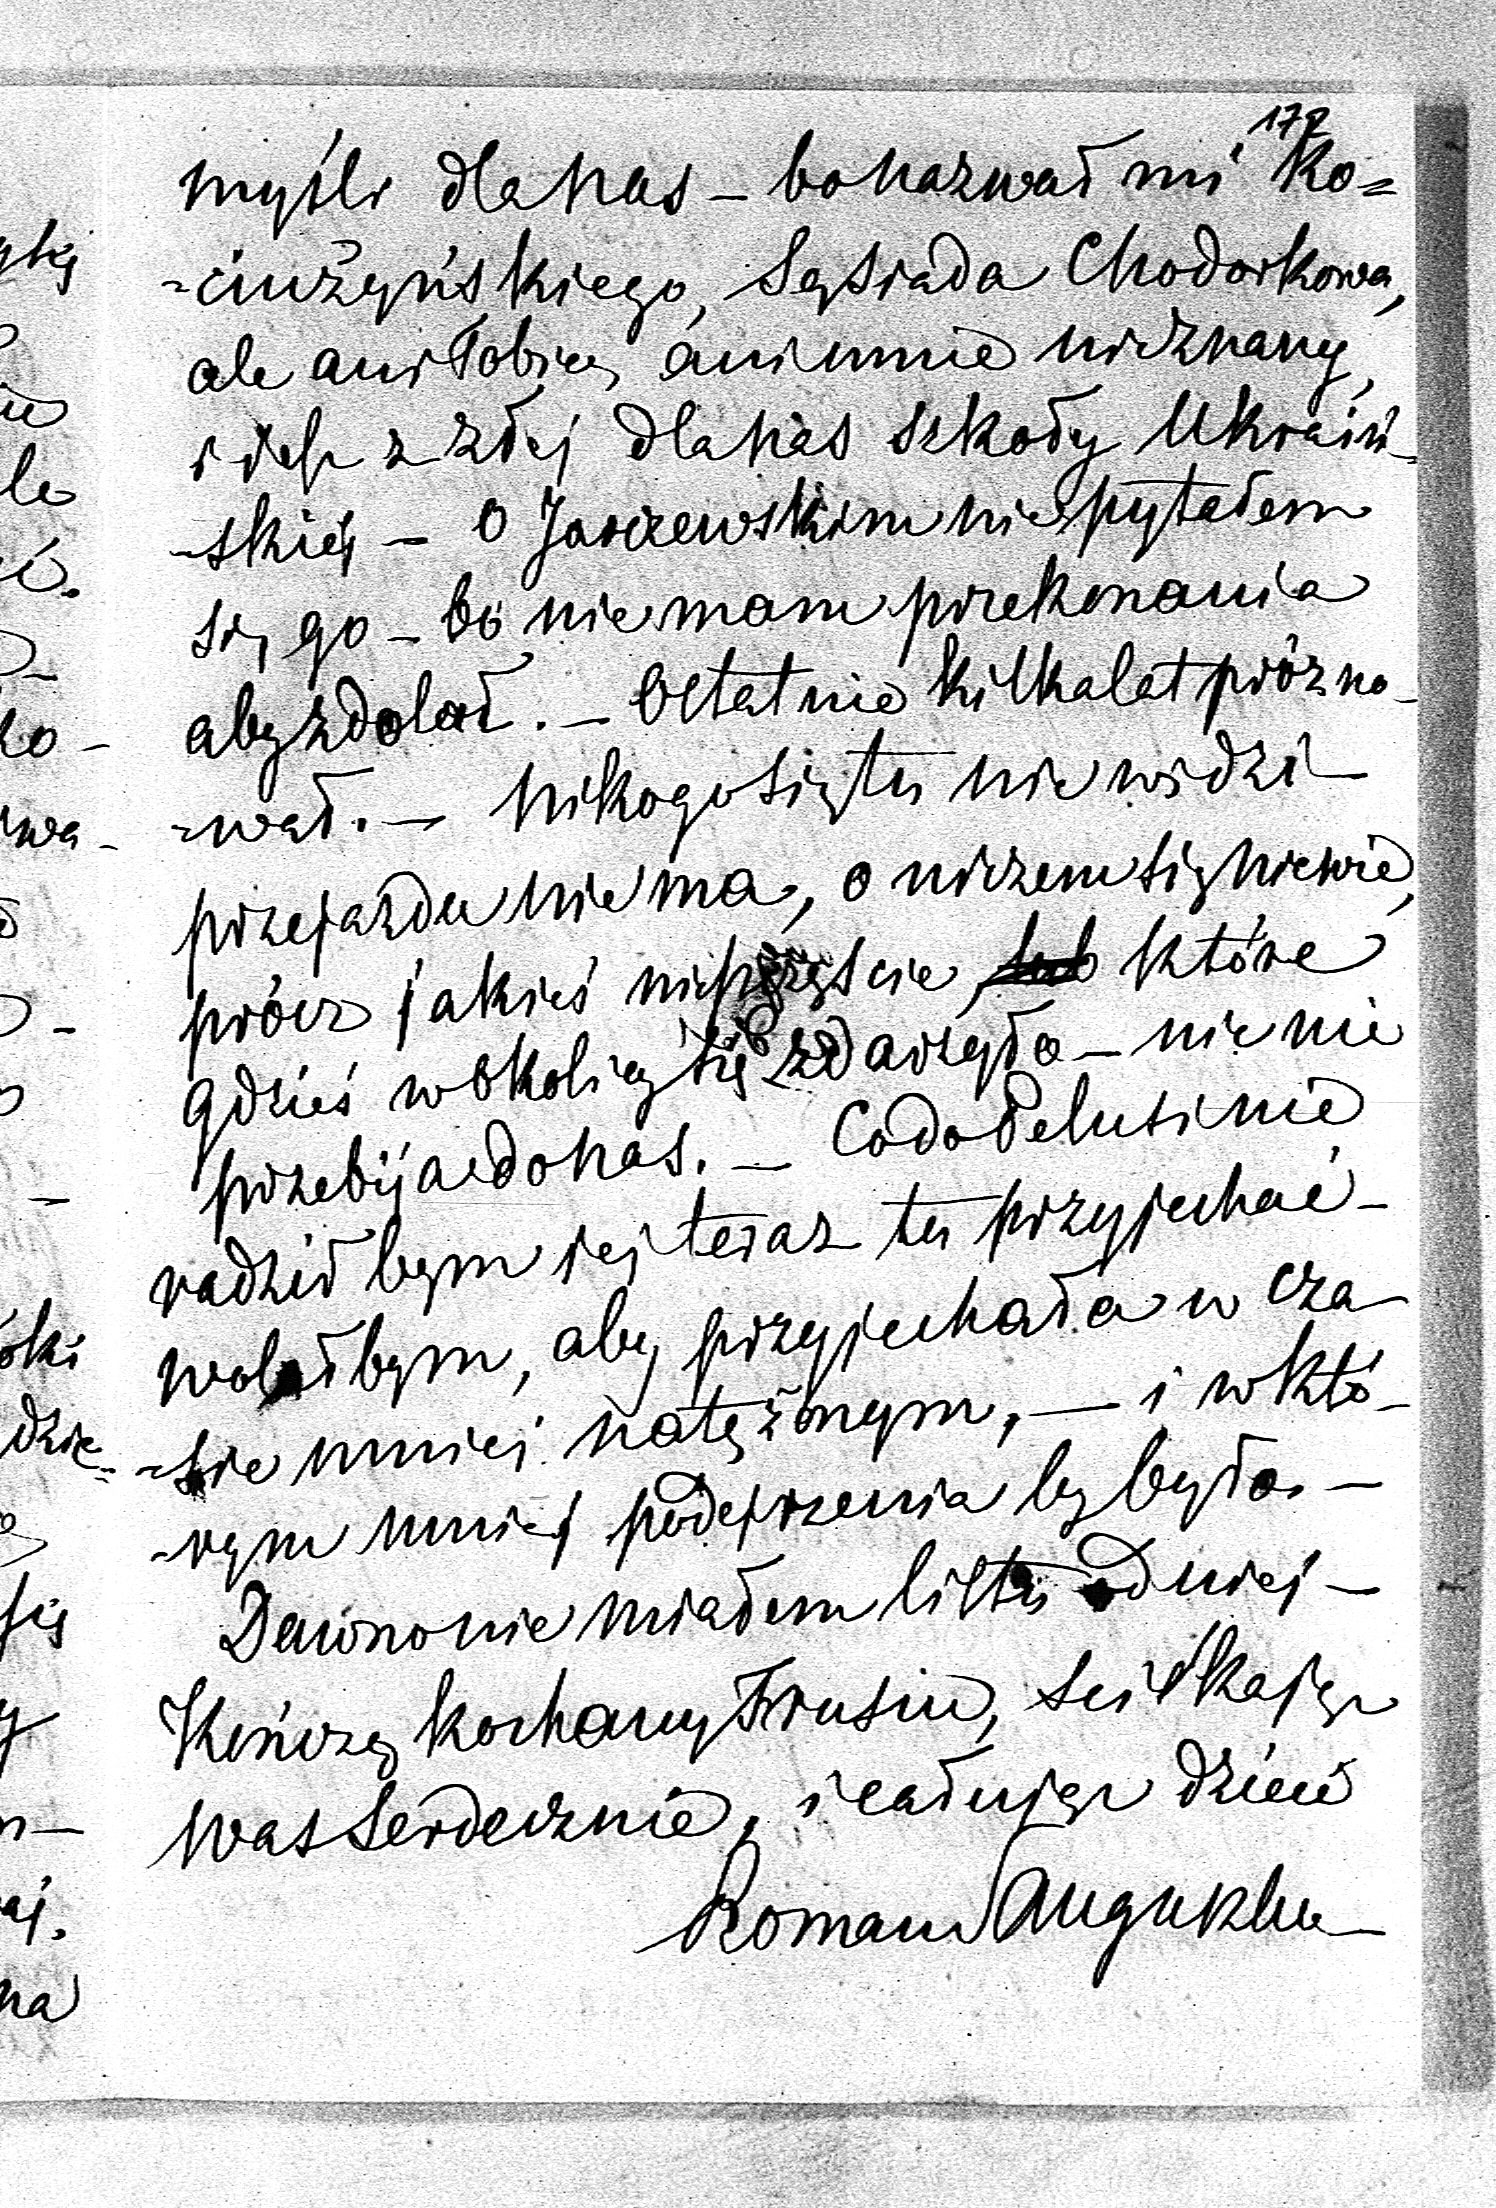 172
myśli dla nas – bo nazwał mi Ko=
=ciużyńskiego, Sąsiada Chodorkowa,
ale ani Tobie, ani mnie nieznany,
i jest z złej dla nas szkoły Ukraiń-
-skiej – O Jarczewskim nie pytałem
się go – bo nie mam przekonania
aby zdołał. – Ostatnie kilka lat próżno-
-wał. – Nikogo się tu nie widzi –
przejazdu nie ma, o niczem się nie wie,
prócz jakieś nieszczęście, które
gdzieś w okolicy się zdarzyło – nic nie
przebija do nas. – Co do Pelusi nie
radził bym jej teraz tu przyjechać –
wolałbym, aby przyjechała w cza-
-sie mniej natężonym, – i w któ-
-rym mniej podejrzenia by było. –
Dawno nie miałem listu od niej –
Kończę kochany Frusiu, Sciskając
Was Serdecznie, i całując dzieci
Roman